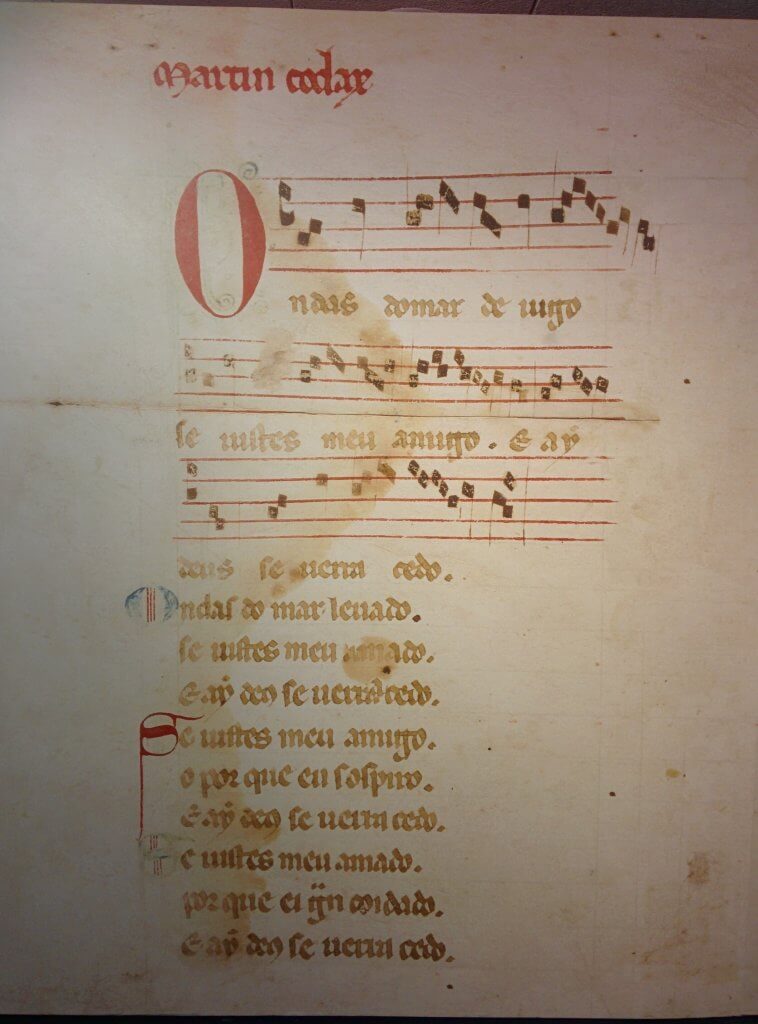 Martin codax
Ondas domar de uigo
se uistes meu amigo. E aẏ
deus se uerra cedo.
Ondas do mar leuado.
se uistes meu amado.
E aẏ deꝯ se uerra cedo.
Se uistes meu amigo.
o por que eu sospiro.
E aẏ deꝯ se uerra cedo.
Se uistes meu amado.
por que ei g̃n coidado.
E aẏ deꝯ se uerra cedo.